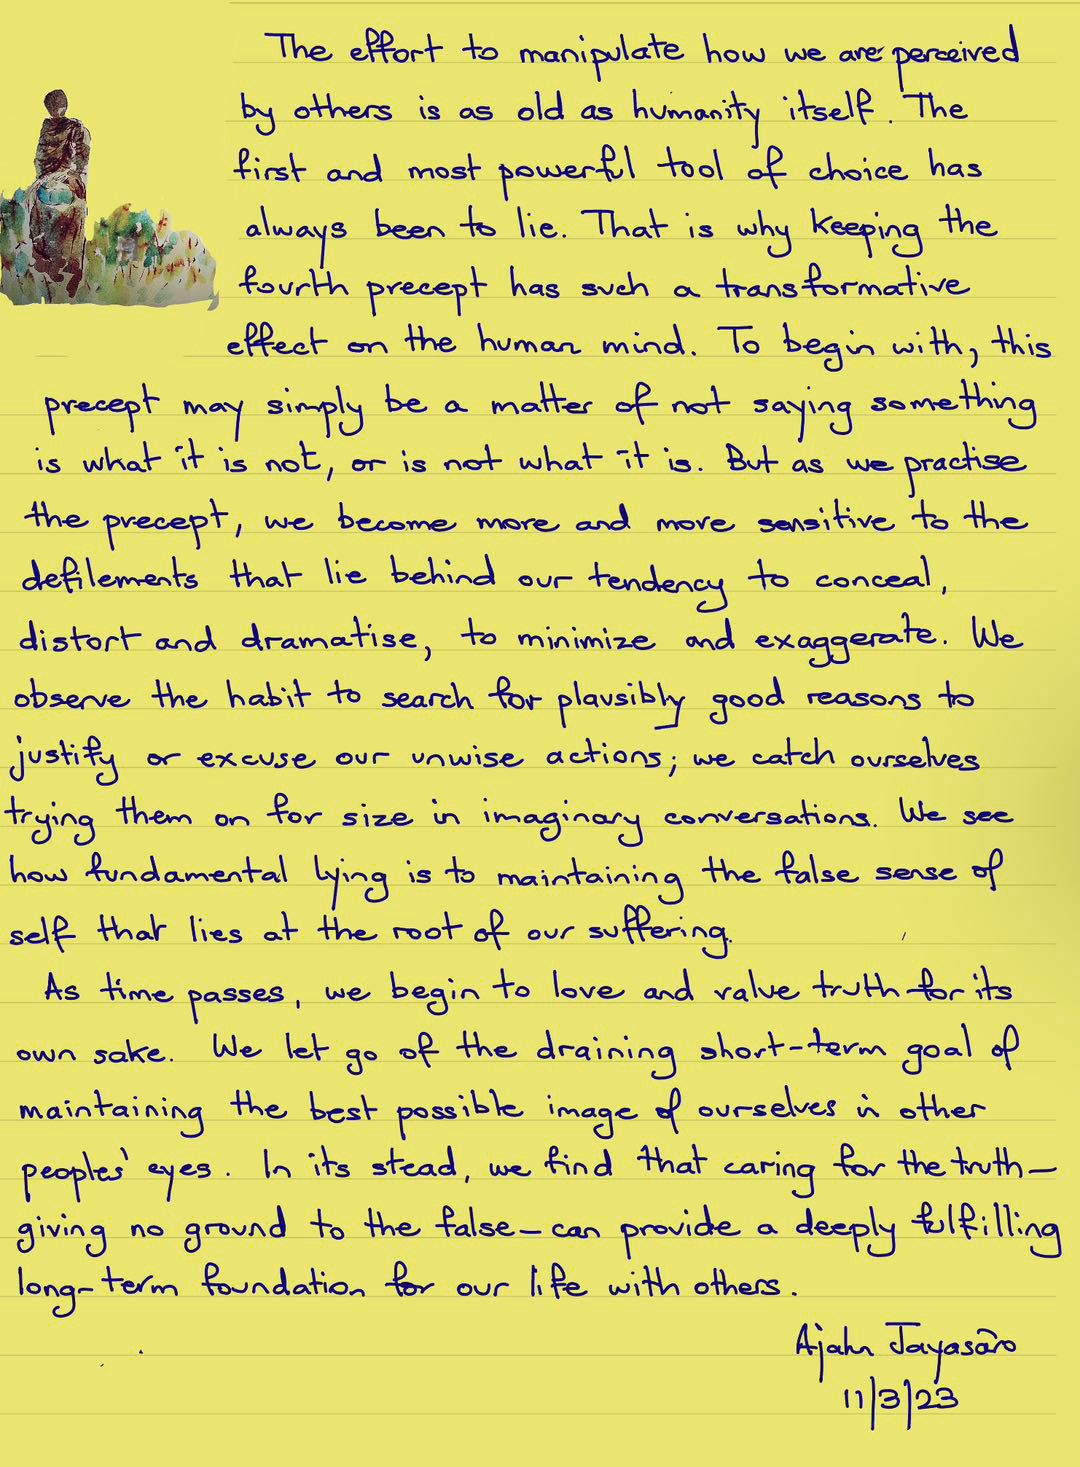 The effort to manipulate how we are perceived
by others is as old as humanity itself. The
first and most powerful tool of choice has
always been to lie. That is why keeping the
fourth precept has such a transformative
effect on the human mind. To begin with, this
precept may simply be a matter of not saying something
is what it is not, or is not what it is. But as we practise
the precept, we become more and more sensitive to the
defilements that lie behind our tendency to conceal,
distort and dramatise, to minimize and exaggerate. We
observe the habit to search for plausibly good reasons to
justify or excuse our unwise actions; we catch ourselves
trying them on for size in imaginary conversations. We see
how fundamental lying is to maintaining the false sense of
self that lies at the root of our suffering.
As time passes, we begin to love and value truth for its
own sake. We let go of the draining short-term goal of
maintaining the best possible image of ourselves in other
peoples' eyes. In its stead, we find that caring for the truth—
giving no ground to the false—can provide a deeply fulfilling
long-term foundation for our life with others.
Ajahn Jayasāro
11/3/23